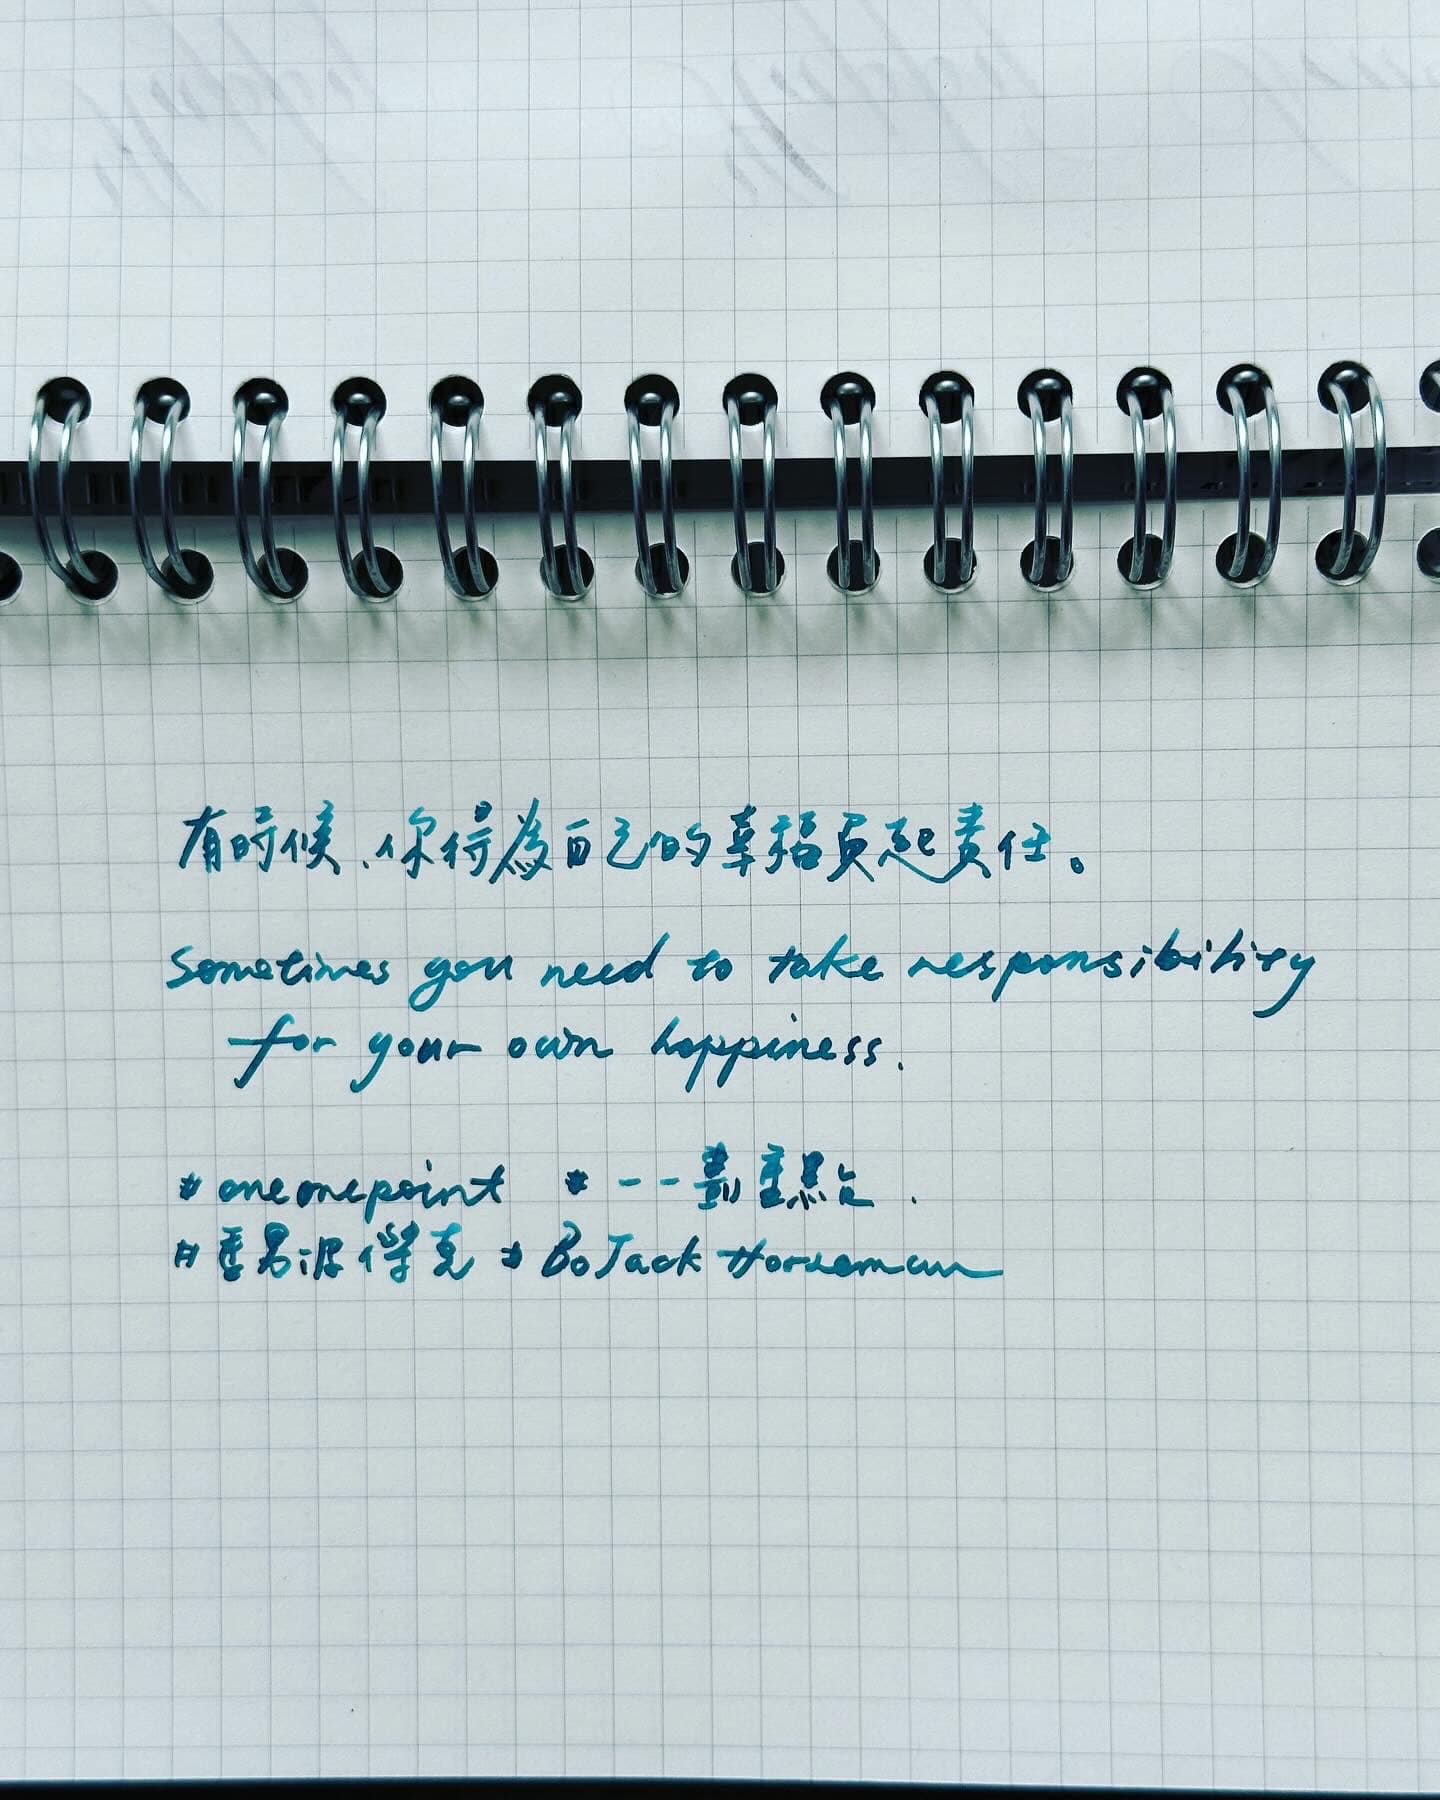 有時候、你得為自己的幸福負起責任。
Sometimes you need to take responsibility
for your own happiness.
#oneonepoint #一一劃重點.
#馬男波傑克 #BoJack Horseman